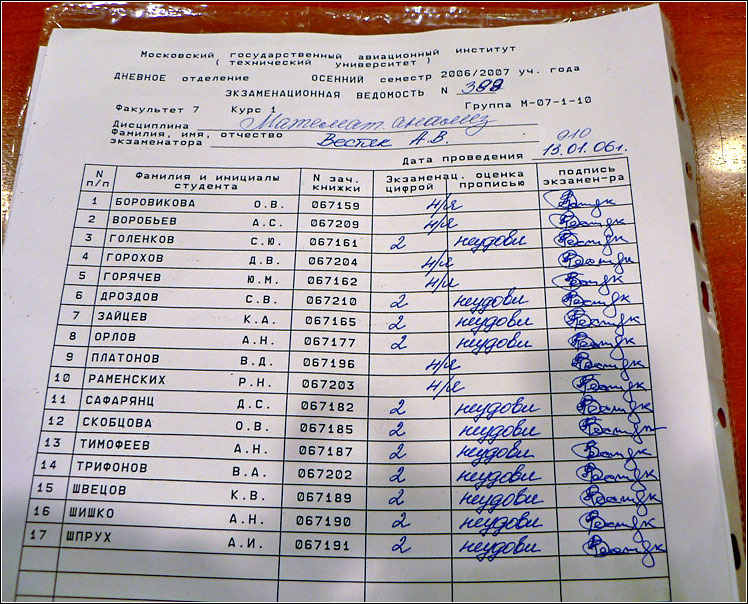 Московский государственный авиационный институт
( технический университет )
ДНЕВНОЕ отделение ОСЕННИЙ семестр 2006/2007 уч. года
ЭКЗАМЕНАЦИОННАЯ ВЕДОМОСТЬ N 388
Факультет 7 Курс 1 Группа М-07-1-10
Дисциплина Математ. анализ
Фамилия, имя, отчество
экзаменатора Вестяк А.В.
Дата проведения 13.01.06г.
N п/п Фамилия и инициалы студента N зач. книжки Экзаменац. оценка цифрой прописью подпись экзамен-ра
1 БОРОВИКОВА О.В. 067159 н/я
2 ВОРОБЬЕВ А.С. 067209 н/я
3 ГОЛЕНКОВ С.Ю. 067161 2 неудовл
4 ГОРОХОВ Д.В. 067204 н/я
5 ГОРЯЧЕВ Ю.М. 067162 н/я
6 ДРОЗДОВ С.В. 067210 2 неудовл
7 ЗАЙЦЕВ К.А. 067165 2 неудовл
8 ОРЛОВ А.Н. 067177 2 неудовл
9 ПЛАТОНОВ В.Д. 067196 н/я
10 РАМЕНСКИХ Р.Н. 067203 н/я
11 САФАРЯНЦ Д.С. 067182 2 неудовл
12 СКОБЦОВА О.В. 067185 2 неудовл
13 ТИМОФЕЕВ А.Н. 067187 2 неудовл
14 ТРИФОНОВ В.А. 067202 2 неудовл
15 ШВЕЦОВ К.В. 067189 2 неудовл
16 ШИШКО А.Н. 067190 2 неудовл
17 ШПРУХ А.И. 067191 2 неудовл